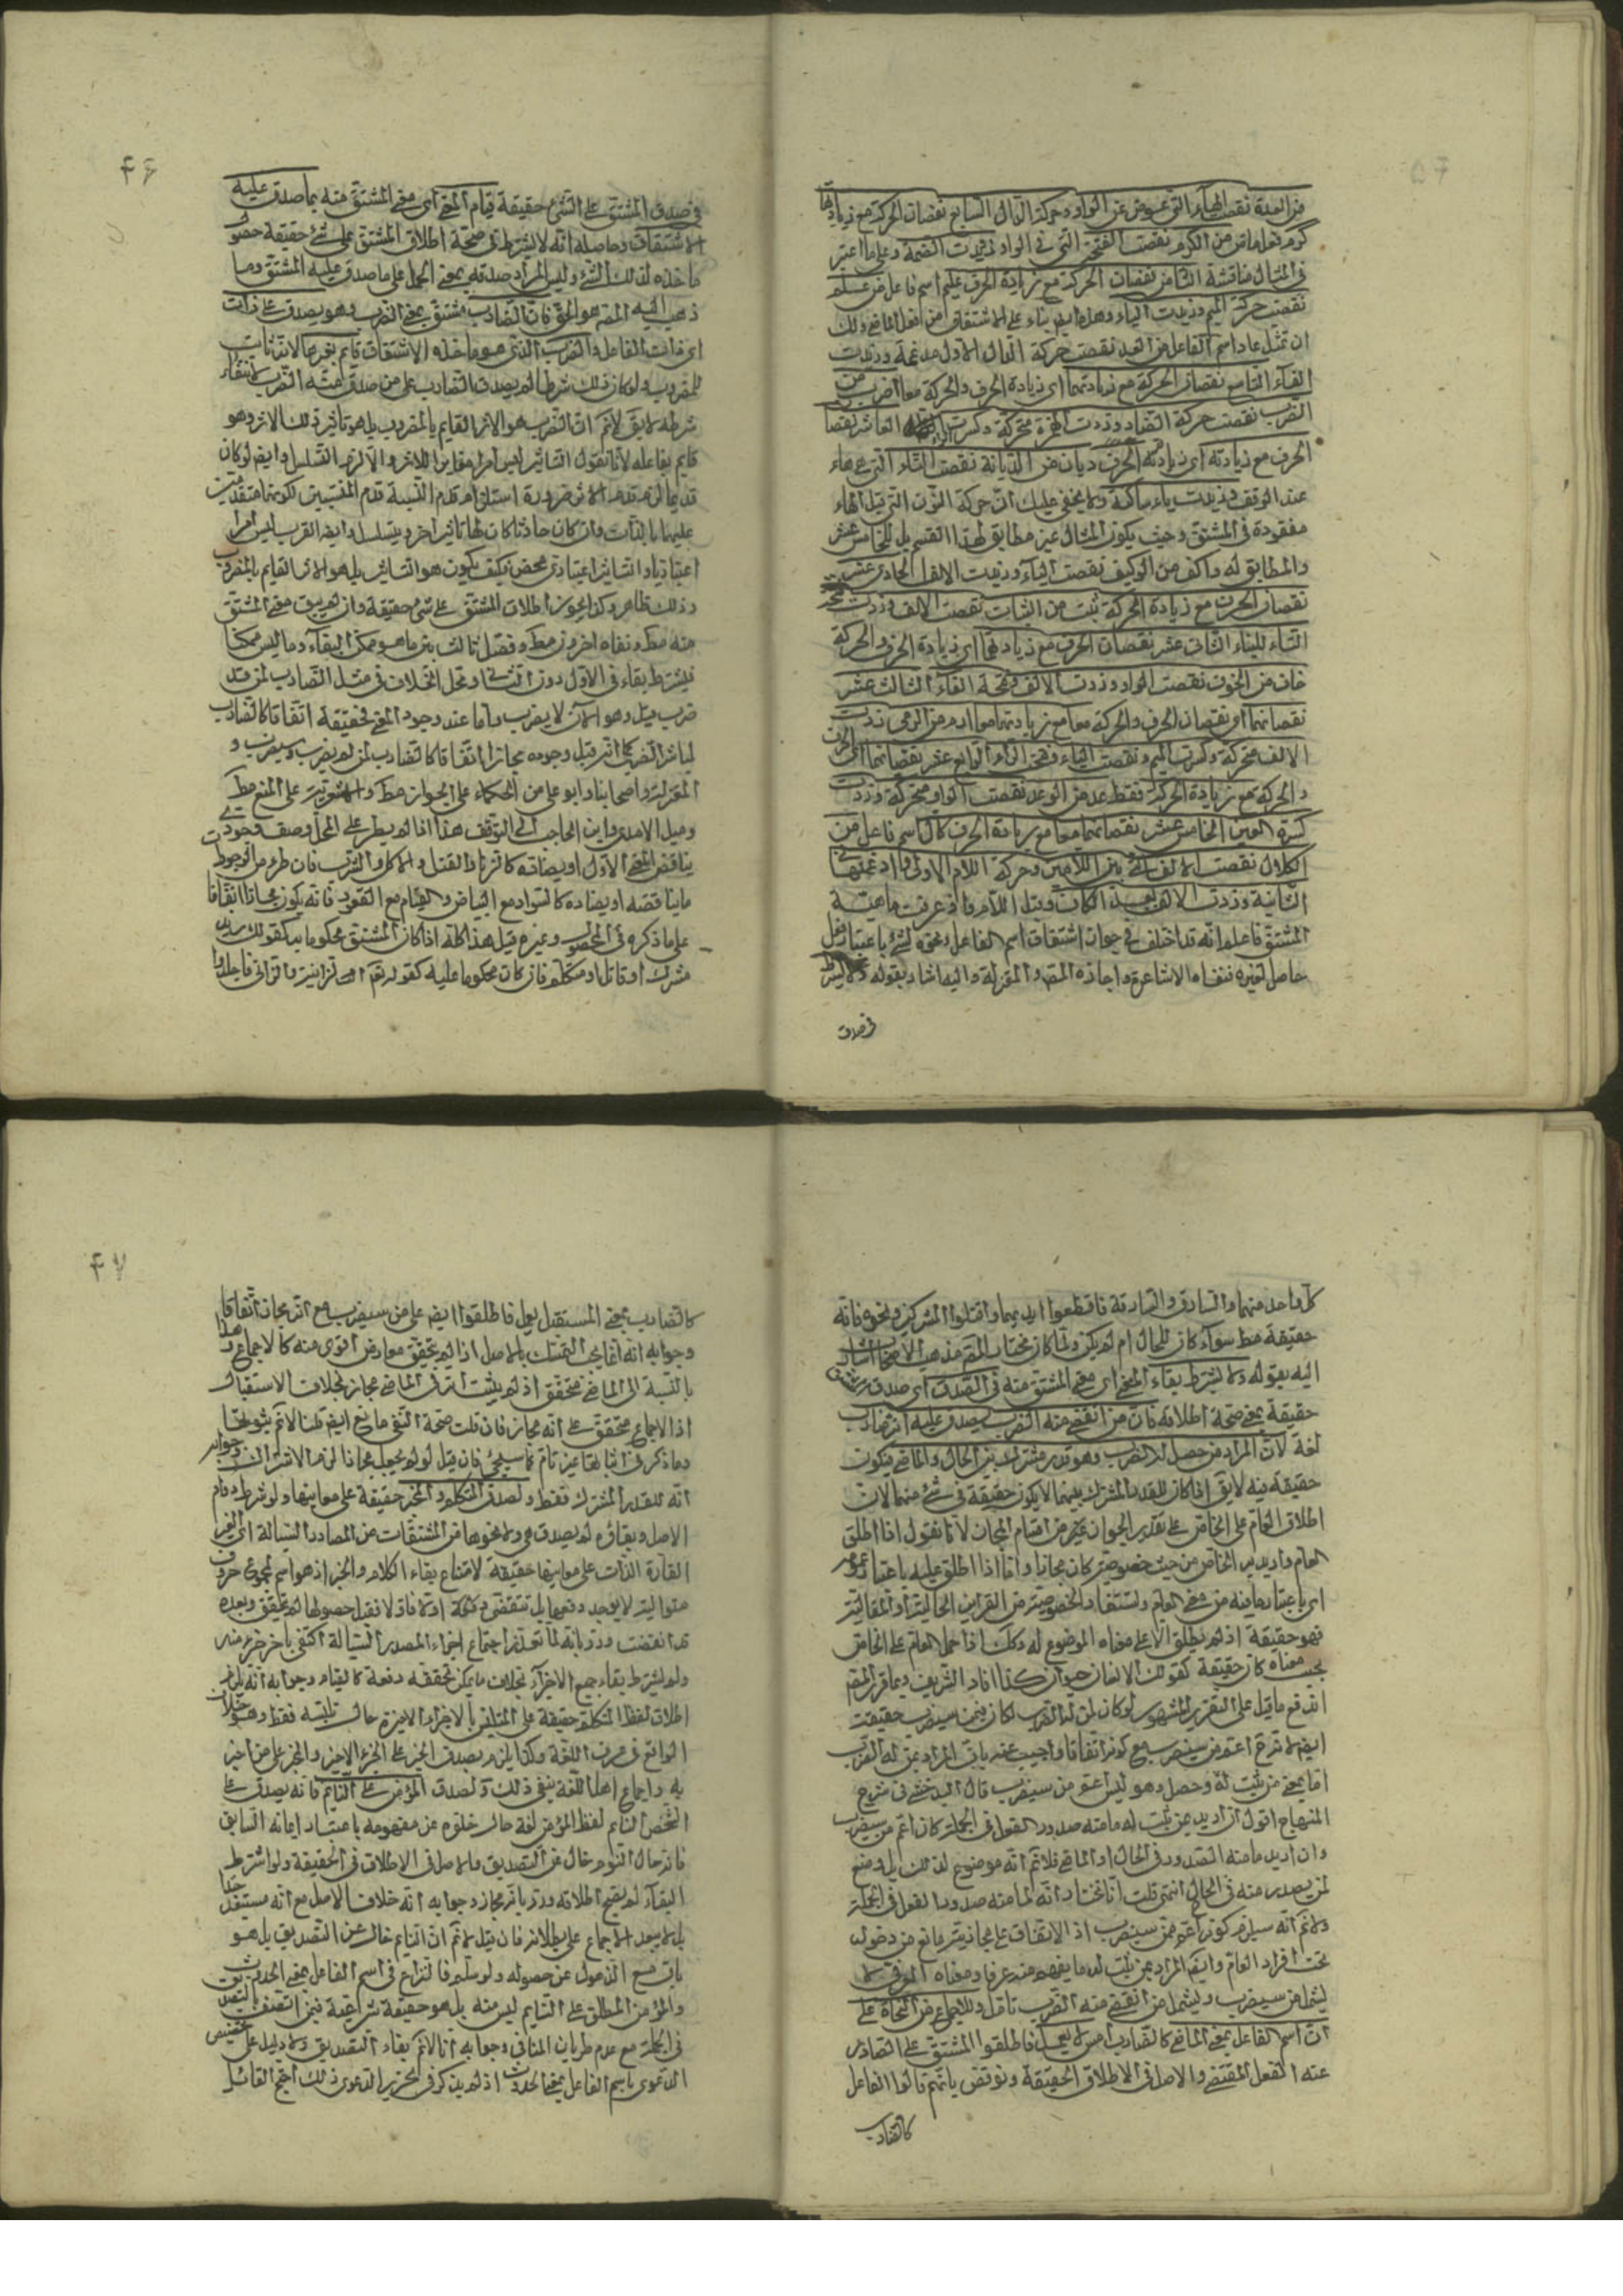 من العدة نقصت الهاء التي عوض عن الواو وحركة الدال السابع نقصان الحركة مع زيادتها
كرم فعل ماض من الكرم نقصت الفتحة التي في الواو وزيدت الضمة وعلى ما اعتبر
في المثال مناقشة الثامن نقصان الحركة مع زيادة الحرف عليم اسم فاعل من علم
نقصت حركة الميم وزيدت الياء وهذا ايضا بناء على الاشتقاق من الفعل الماضي ولك
ان تمثل عاد اسم الفاعل من العد نقصت حركة الدال الاولى مدغمة وزيدت
الف التاسع نقصان الحركة مع زيادتهما اي زيادة الحرف والحركة معا اضرب من
الضرب نقصت حركة الضاد وزدت الهمزة متحركة وكسرت الراء العاشر نقصان
الحرف مع زيادته اي زيادة الحرف ديان من الديانة نقصت التاء التي هي هاء
عند الوقف وزيدت ياء ساكنة ولا يخفى عليك ان حركة النون التي قبل الهاء
مفقودة في المشتق وحينئذ يكون المثال غير مطابق لهذا القسم بل للخامس عشر
والمطابق له واكف من الوكيف نقصت الياء وزيدت الالف الحادي عشر
نقصان الحرف مع زيادة الحركة ثبت من الثبات نقصت الالف وزدت فتحة
التاء للبناء الثاني عشر نقصان الحرف مع زيادتهما اي زيادة الحرف والحركة
خاف من الخوف نقصت الواو وزدت الالف وفتحة الفاء الثالث عشر
نقصانهما اي نقصان الحرف والحركة معا مع زيادتهما معا ارم من الرمي زدت
الالف متحركة وكسرت الميم ونقصت الياء وفتح الراء الرابع عشر نقصانهما اي الحرف
والحركة مع زيادة الحركة فقط عد من الوعد نقصت الواو متحركة وزدت
كسرة العين الخامس عشر نقصانهما معا مع زيادة الحرف كال اسم فاعل من
الكلال نقصت الالف التي بين اللامين وحركة اللام الاولى وادغمتها في
الثانية وزدت الالف بعد الكاف وقبل اللام واذ عرفت ماهية
المشتق فاعلم انه قد اختلف في جواز اشتقاق اسم الفاعل ونحوه لشئ باعتبار فعل
حاصل لغيره فنفاه الاشاعرة واجازه المص والمعتزلة واليه اشار بقوله ولا يشترط
في صدق
۴۶
في صدق المشتق على الشئ حقيقة قيام المعنى اي معنى المشتق منه بما صدق عليه
الاشتقاق وحاصله انه لا يشترط في صحة اطلاق المشتق على شئ حقيقة حصول
ماخذه لذلك الشئ وليس المراد صدقه بمعنى الحمل على ما صدق عليه المشتق وما
ذهب اليه المص هو الحق فان الضارب مشتق بمعنى الضرب وهو يصدق على ذات
اي ذات الفاعل والضرب الذي هو ماخذ الاشتقاق قائم بغيرها لانه ثابت
للمضروب ولو كان ذلك شرطا لم يصدق الضارب على من صدق منه الضرب لانتفاء
شرطه لا يق لا نم ان الضرب هو الاثر القايم بالمضروب بل هو تاثير ذلك الاثر وهو
قايم بفاعله لانا نقول التاثير ليس امرا مغايرا للاثر والا لزم التسلسل وايضا لو كان
قديما لزم قدم الاثر ضرورة استلزام قدم النسبة قدم المنتسبين لكونهما متقدمين
عليها بالذات وان كان حادثا كان لها تاثير اخر ويتسلسل وايضا الضرب ليس امرا
اعتباريا والتاثير اعتباري محض فكيف يكون هو التاثير بل هو الاثر القايم بالمضروب
وذلك ظاهر وكذا يجوز اطلاق المشتق على شئ حقيقة وان لم يبق معنى المشتق
منه مط ونفاه اخرون مط وفصل ثالث بين ما هو ممكن البقاء وما ليس ممكنا
فيشترط بقاء في الاول دون الثاني ومحل الخلاف في مثل الضارب لمن قد
ضرب قبل وهو الان لا يضرب واما عند وجود المعنى فحقيقة اتفاقا كالضارب
لمباشر الضرب كما انه قبل وجوده مجاز اتفاقا كالضارب لمن لم يضرب وسيضرب و
المعتزلة واصحابنا وابو علي من الحكماء على الجواز مط والاشعرية على المنع مط
وميل الامدي وابن الحاجب الى التوقف هذا اذا لم يطرء على المحل وصف وجودي
يناقض المعنى الاول او يضاده كالزنا والقتل والاكل والشرب فان طرء من الوجودي
ما يناقضه او يضاده كالسواد مع البياض والقيام مع القعود فانه يكون مجازا اتفاقا
على ما ذكره في المحصول وغيره قيل هذا كله اذا كان المشتق محكوما به كقولك زيد
مشرك او قاتل او متكلم فان كان محكوما عليه كقوله تعالى الزانية والزاني فاجلدوا
كل واحد منهما والسارق والسارقة فاقطعوا ايديهما واقتلوا المشركين ونحوه فانه
حقيقة مط سواء كان للحال ام لم يكن ولما كان مختار المص مذهب الاصحاب اشار
اليه بقوله ولا يشترط بقاء المعنى اي معنى المشتق منه في الصدق اي صدق المشتق
حقيقة بمعنى صحة اطلاقه فان من انقضى منه الضرب يصدق عليه انه ضارب
لغة لان المراد من حصل له الضرب وهو قدر مشترك بين الحال والماضي فيكون
حقيقة فيه لا يق اذا كان للقدر المشترك بينهما لا يكون حقيقة في شئ منهما لان
اطلاق العام على الخاص على تقدير الجواز غير من اقسام المجاز لانا نقول اذا اطلق
العام واريد به الخاص من حيث خصوصيته كان مجازا واما اذا اطلق عليه باعتبار عمومه
اي باعتبار ما فيه من معنى العام وتستفاد الخصوصية من القراين الحالية او المقالية
فهو حقيقة اذ لم يطلق الا على معناه الموضوع له وكذا اذا حمل العام على الخاص
بحسب معناه كان حقيقة كقولك الانسان حيوان كذا افاد الشريف وبما قرر المص
اندفع ما قيل على التقرير المشهور لو كان لمن له الضرب لكان فيمن سيضرب حقيقة
ايضا لانه اعم من سيضرب مع كونه اتفاقا واجيب عنه بان المراد بمن له الضرب
اما بمعنى من ثبت له وحصل وهو ليس اعم من سيضرب قال البدخشي في شرح
المنهاج اقول ان اريد بمن ثبت له ما منه صدور الفعل في الجملة كان اعم من سيضرب
وان اريد ما منه الصدور في الحال او الماضي فلا نم انه موضوع لذلك بل وضع
لمن يصدر منه في الحال انتهى قلت انا نختار انه لما منه صدور الفعل في الجملة
ولا نم انه سيلزم كونه اعم ممن سيضرب اذ الاتفاق على مجازيته مانع من دخوله
تحت افراد العام وايضا المراد بمن ثبت له ما يفهم منه عرفا ومعناه العرفي لا
يشمل من سيضرب ويشمل من انقضى منه الضرب تاقل وللاجماع من النحاة على
ان اسم الفاعل بمعنى الماضي كالضارب امس لا يعمل فاطلقوا المشتق على الصادر
عنه الفعل المقتضي والاصل في الاطلاق الحقيقة ونوقض بانهم قالوا الفاعل
كالضارب
۴۷
كالضارب بمعنى المستقبل يعمل فاطلقوا ايضا على من سيضرب مع انه مجاز اتفاقا
وجوابه انه انما يجب التمسك بالاصل اذا لم يتحقق معارض اقوى منه كالاجماع وهذا
بالنسبة الى الماضي متحقق اذ لم يثبت انه في الماضي مجاز بخلاف الاستقبال
اذ الاجماع متحقق على انه مجاز فان قلت صحة النفي مانع ايضا قلنا لا نم ثبوتها
وما ذكر في اثباتها غير تام كما سيجئ فان قيل لو لم يجعل مجازا لزم الاشتراك وجوابه
انه للقدر المشترك فقط ولصدق المتكلم والمخبر حقيقة على معانيها ولو شرط دوام
الاصل وبقاؤه لم يصدق هي ولا نحوها من المشتقات عن المصادر السيالة اي الغير
القارة الذات على معانيها حقيقة لامتناع بقاء الكلام والخبر اذ هو اسم لمجموع حروف
متوالية لا يوجد دفعة بل تنقضي وكلمة اولا فاولا فقبل حصولها لم يتحقق وبعده
قد انقضت ورد بانه لما تعذر اجتماع اجزاء المصدر السيالة اكتفى باخر جزء منه
ولم يشترط بقاء جميع الاجزاء بخلاف ما يمكن تحققه دفعة كالقيام وجوابه انه يلزم
اطلاق لفظ المتكلم حقيقة على المتلبس بالاجزاء الاخيرة حال تلبسه فقط وهو خلاف
الواقع في عرف اللغة وكذا يلزم صدق الخبر على الجزء الاخير والمخبر على من اخبر
به واجماع اهل اللغة ينفي ذلك ولصدق المؤمن على النايم فانه يصدق على
الشخص النايم لفظ المؤمن لغة حال خلوه عن مفهومه باعتبار ايمانه السابق
فانه حال النوم خال عن التصديق والاصل في الاطلاق في الحقيقة ولو اشترط
البقاء لم يصح اطلاقه ورد بانه مجاز وجوابه انه خلاف الاصل مع انه مستبعد جدا
بل لا يبعد الاجماع على بطلانه فان قيل لا نم ان النايم خال عن التصديق بل هو
باق مع الذهول عن حصوله ولو سلم فالنزاع في اسم الفاعل بمعنى الحدوث
والمؤمن المطلق على النايم ليس منه بل هو حقيقة شرعية فيمن اتصف بالتصديق
في الجملة مع عدم طريان المنافي وجوابه انا لا نم بقاء التصديق ولا دليل على تخصيص
الدعوى باسم الفاعل بمعنى الحدوث اذ لم يذكر في تحرير الدعوى ذلك احتج القائل